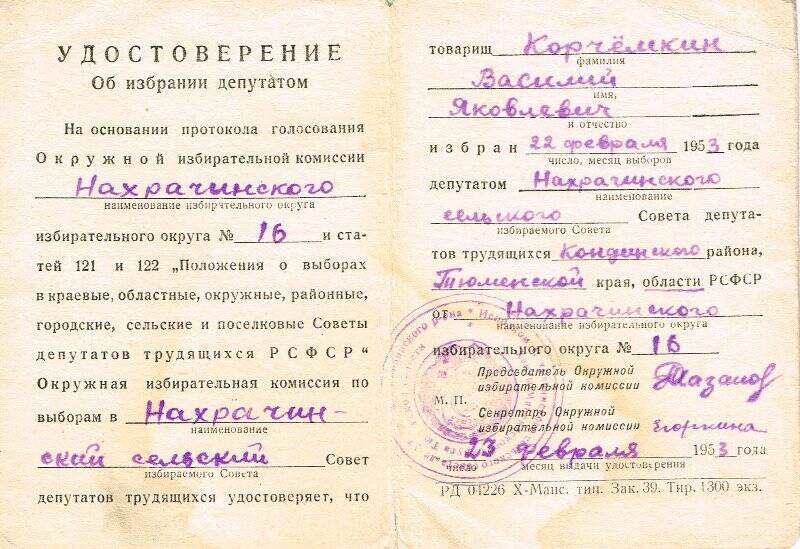 УДОСТОВЕРЕНИЕ
Об избрании депутатом
На основании протокола голосования
Окружной избирательной комиссии
Нахрачинского
наименование избирательного округа
избирательного округа № 16 и ста-
тей 121 и 122 „Положения о выборах
в краевые, областные, окружные, районные,
городские, сельские и поселковые Советы
депутатов трудящихся РСФСР“
Окружная избирательная комиссия по
выборам в Нахрачин-
наименование
ский сельский Совет
избираемого Совета
депутатов трудящихся удостоверяет, что
товарищ Корчёмкин
фамилия
Василий
имя,
Яковлевич
и отчество
избран 22 февраля 1953 года
число, месяц выборов
депутатом Нахрачинского
наименование
сельского Совета депута-
избираемого Совета
тов трудящихся Кондинского района,
Тюменской края, области РСФСР
от Нахрачинского
наименование избирательного округа
избирательного округа № 16
Председатель Окружной
избирательной комиссии
М. П.
Секретарь Окружной
избирательной комиссии Егоркина
23 февраля 1953 года
число месяц выдачи удостоверения
РД 04226 Х-Манс. тип. Зак. 39. Тир. 1300 экз.